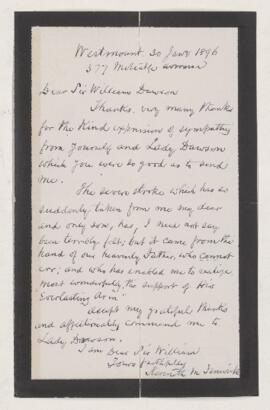 Westmount 30 Jany 1896
377 Metcalfe avenue
Dear Sir William Dawson
Thanks, very many thanks
for the kind expression of sympathy
from yourself and Lady Dawson
which you were so good as to send
me.
The severe stroke which has so
suddenly taken from me my dear
and only son, has, I need not say
been terribly felt; but it came from the
hand of our heavenly Father, who cannot
err; and who has enabled me to realize
most wonderfully, the support of His
"Everlasting Arm".
Accept my grateful thanks
and affectionately commend me to
Lady Dawson.
I am Dear Sir William
Yours faithfully